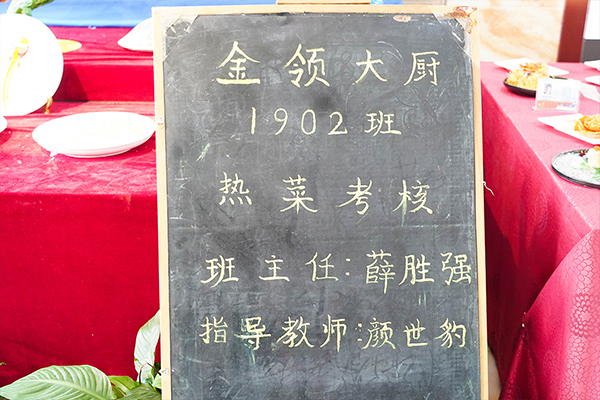 金领大厨
1902班
热菜考核
班主任:薛胜强
指导教师:颜世豹